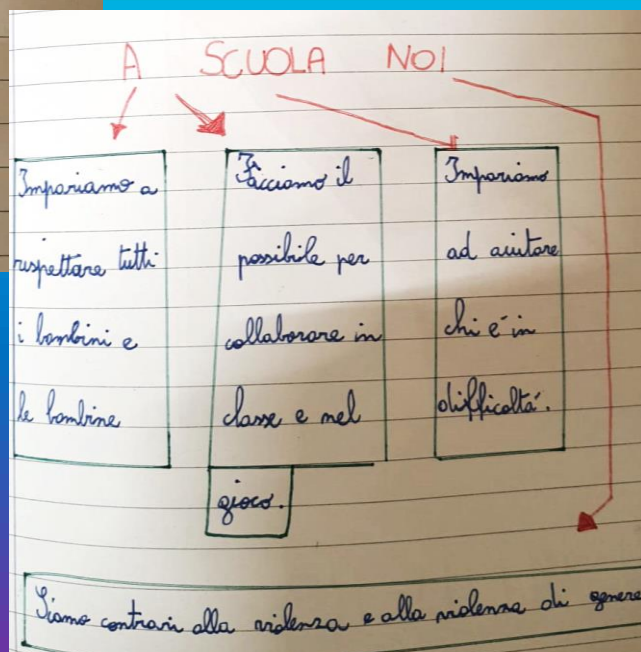 A SCUOLA NOI
Impariamo a
rispettare tutti
i bambini e
le bambine
Facciamo il
possibile per
collaborare in
classe e nel
gioco.
Impariamo
ad aiutare
chi é in
difficoltá.
Siamo contrari alla violenza e alla violenza di genere